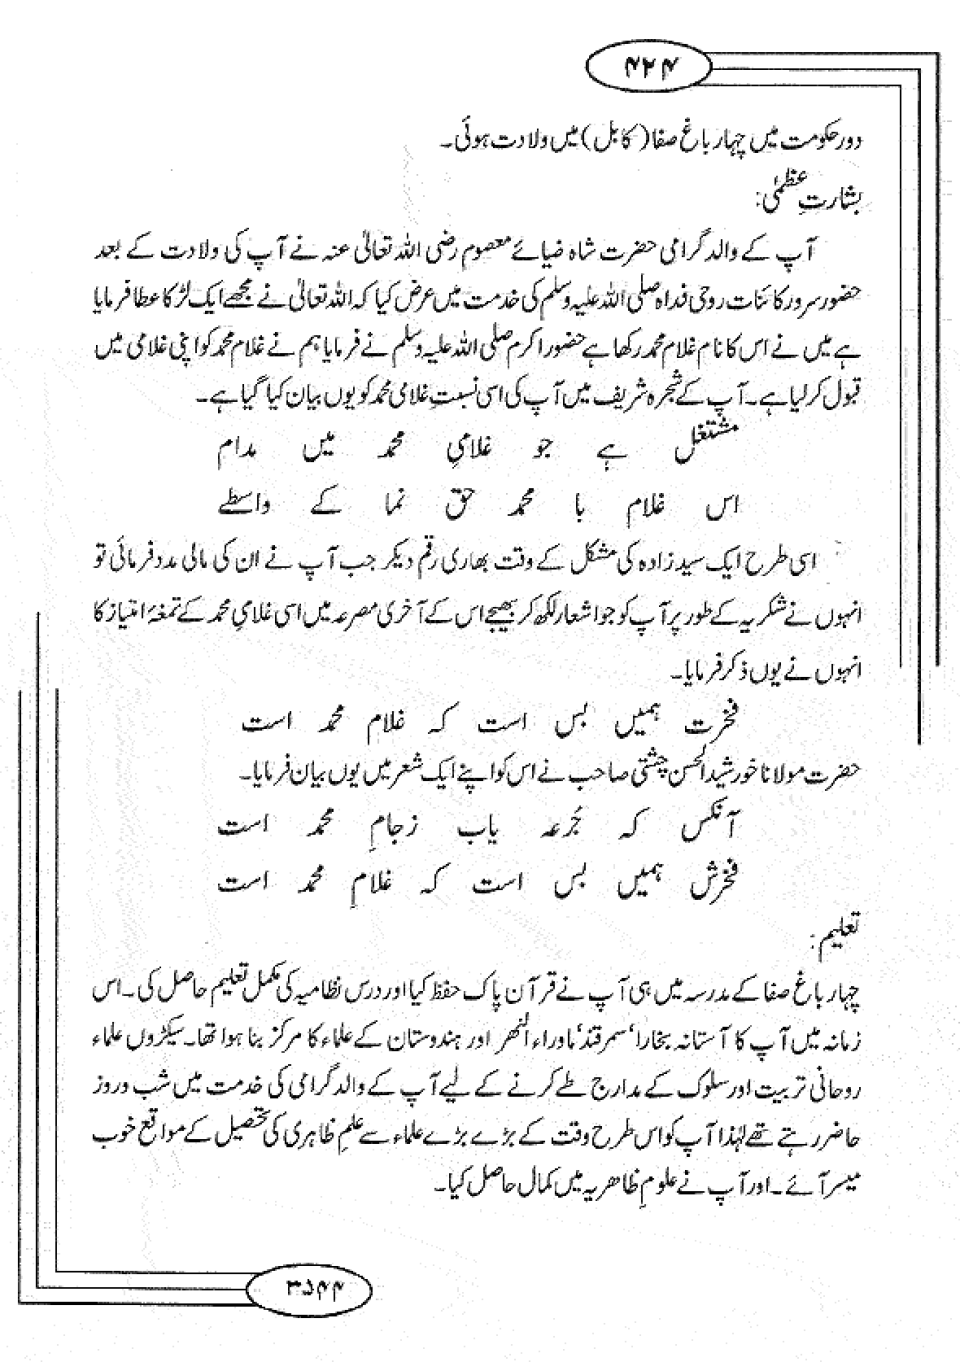 ۴۲۴
دور حکومت میں چہار باغ صفا (کابل) میں ولادت ہوئی۔
بشارتِ عظمیٰ:
آپ کے والد گرامی حضرت شاہ ضیائے معصوم رضی اللہ تعالیٰ عنہ نے آپ کی ولادت کے بعد
حضور سرور کائنات روحی فداہ صلی اللہ علیہ وسلم کی خدمت میں عرض کیا کہ اللہ تعالیٰ نے مجھے ایک لڑکا عطا فرمایا
ہے میں نے اس کا نام غلام محمد رکھا ہے حضور اکرم صلی اللہ علیہ وسلم نے فرمایا ہم نے غلام محمد کو اپنی غلامی میں
قبول کر لیا ہے۔ آپ کے شجرہ شریف میں آپ کی اسی نسبتِ غلامی محمد کو یوں بیان کیا گیا ہے۔
مشتغل ہے جو غلامیِ محمد میں مدام
اس غلام با محمد حق نما کے واسطے
اسی طرح ایک سید زادہ کی مشکل کے وقت بھاری رقم دیکر جب آپ نے ان کی مالی مدد فرمائی تو
انہوں نے شکریہ کے طور پر آپ کو جو اشعار لکھ کر بھیجے اس کے آخری مصرعہ میں اسی غلامیِ محمد کے تمغۂ امتیاز کا
انہوں نے یوں ذکر فرمایا۔
فخرت ہمیں بس است کہ غلام محمد است
حضرت مولانا خورشید الحسن چشتی صاحب نے اس کو اپنے ایک شعر میں یوں بیان فرمایا۔
آنکس کہ جُرعہ یاب زجامِ محمد است
فخرش ہمیں بس است کہ غلامِ محمد است
تعلیم:
چہار باغ صفا کے مدرسہ میں ہی آپ نے قرآن پاک حفظ کیا اور درس نظامیہ کی مکمل تعلیم حاصل کی۔ اس
زمانہ میں آپ کا آستانہ بخارا' سمرقند' ماوراء النھر اور ہندوستان کے علماء کا مرکز بنا ہوا تھا۔ سیکڑوں علماء
روحانی تربیت اور سلوک کے مدارج طے کرنے کے لیے آپ کے والد گرامی کی خدمت میں شب و روز
حاضر رہتے تھے لہٰذا آپ کو اس طرح وقت کے بڑے بڑے علماء سے علمِ ظاہری کی تحصیل کے مواقع خوب
میسر آئے۔ اور آپ نے علومِ ظاھریہ میں کمال حاصل کیا۔
۳۵۴۴